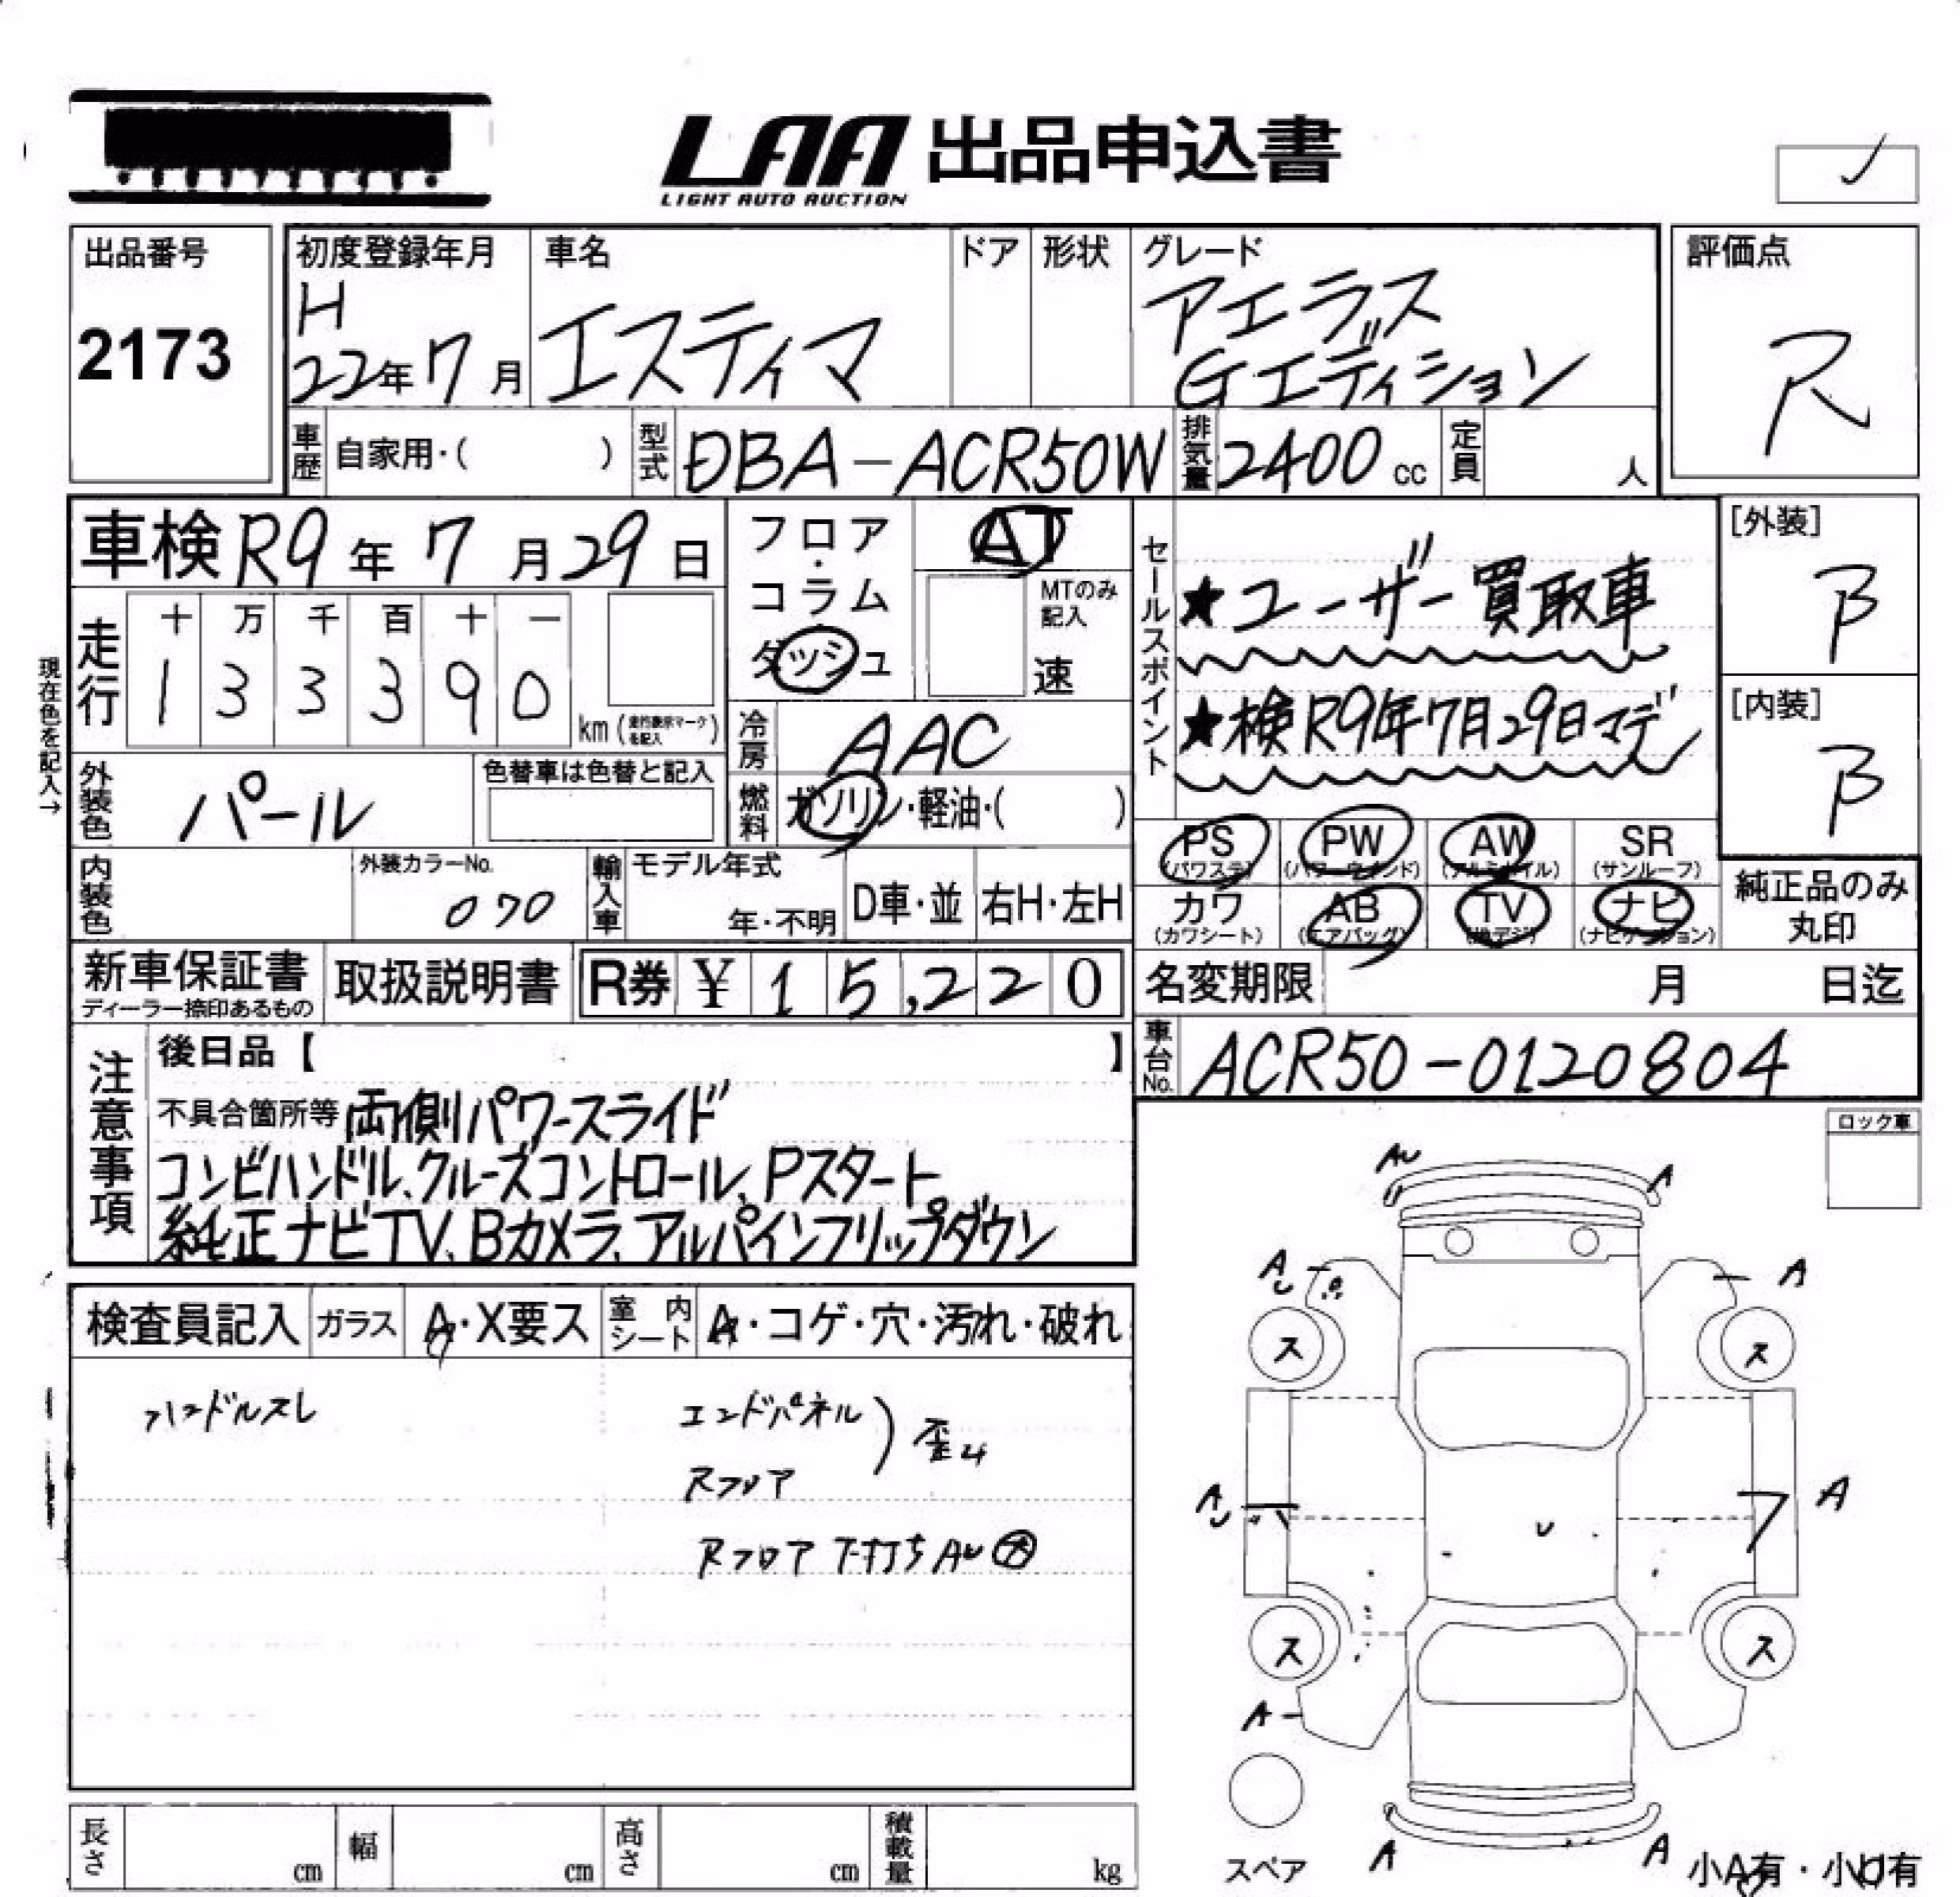 LAA 出品申込書
LIGHT AUTO AUCTION
出品番号
2173
初度登録年月
H
22年7月
車名
エスティマ
ドア
形状
グレード
アエラス
Gエディション
評価点
R
車歴 自家用・( )
型式 DBA-ACR50W
排気量 2400 cc
定員 人
車検 R9年7月29日
フロア・コラム
ダッシュ
AT
MTのみ記入
速
セールスポイント
★ユーザー買取車
★検R9年7月29日マデ
[外装]
B
[内装]
B
現在色を記入→
走行
十 万 千 百 十 一
1 3 3 3 9 0
km (走行表示マークを記入)
冷房 AAC
外装色 パール
色替車は色替と記入
燃料 ガソリン・軽油・( )
PS (パワステ)
PW (パワーウインド)
AW (アルミホイル)
SR (サンルーフ)
カワ (カワシート)
AB (エアバッグ)
TV (地デジ)
ナビ (ナビゲーション)
純正品のみ
丸印
内装色
外装カラーNo.
070
輸入車
モデル年式
年・不明
D車・並
右H・左H
新車保証書
ディーラー捺印あるもの
取扱説明書
R券 ¥ 15,220
名変期限 月 日迄
車台No. ACR50-0120804
注意事項
後日品【 】
不具合箇所等 両側パワースライド
コンビハンドル、クルーズコントロール、Pスタート
純正ナビTV、Bカメラ、アルパインフリップダウン
ロック車
検査員記入
ガラス A・X要ス
室内シート A・コゲ・穴・汚れ・破れ
ハンドルスレ
エンドパネル
Rフロア
歪み
Rフロア下打ちAU大
AU A
AU A
ス ス
AU A
U
ス ス
A
スペア
A A
小A有・小U有
長さ cm
幅 cm
高さ cm
積載量 kg